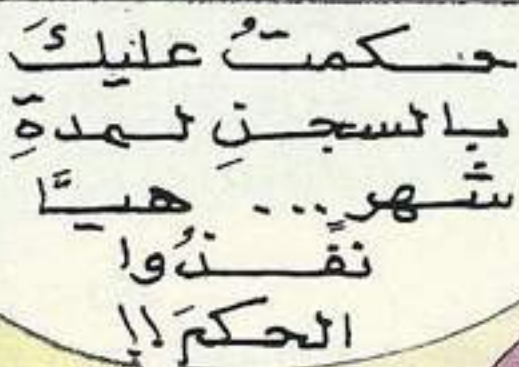 حكمتُ عليكَ
بالسجنِ لمدةِ
شهر... هيَّا
نفّذُوا
الحكمَ!!